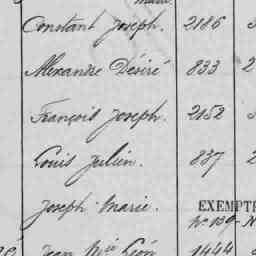 Constant Joseph. 2186
Alexandre Désiré 833 2
François Joseph. 2152
Louis Julien. 837 2
Joseph Marie. EXEMPTÉ
Jean Mie Léon 1444